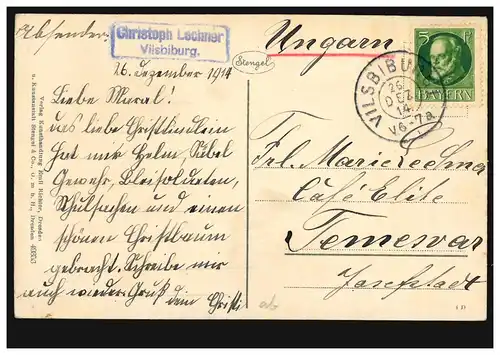 Absender:
Christoph Lechner
Vilsbiburg.
26. Dezember 1914
Liebe Maral!
das liebe Christkindlein
hat mir Helm, Säbel
Gewehr, Bleisoldaten,
Schulsachen und einen
schönen Christbaum
gebracht. Schreibe mir
auch wieder. Gruß
dein Christl
Verlag Kunsthandlung Emil Richter, Dresden
u. Kunstanstalt Stengel & Co., G. m. b. H., Dresden 40353
Stengel
Ungarn
5 Pf
BAYERN
VILSBIBURG
26
DEZ
14
V6-7a
Frl. Marie Lechner
Café Elite
Temesvar
Josefstadt